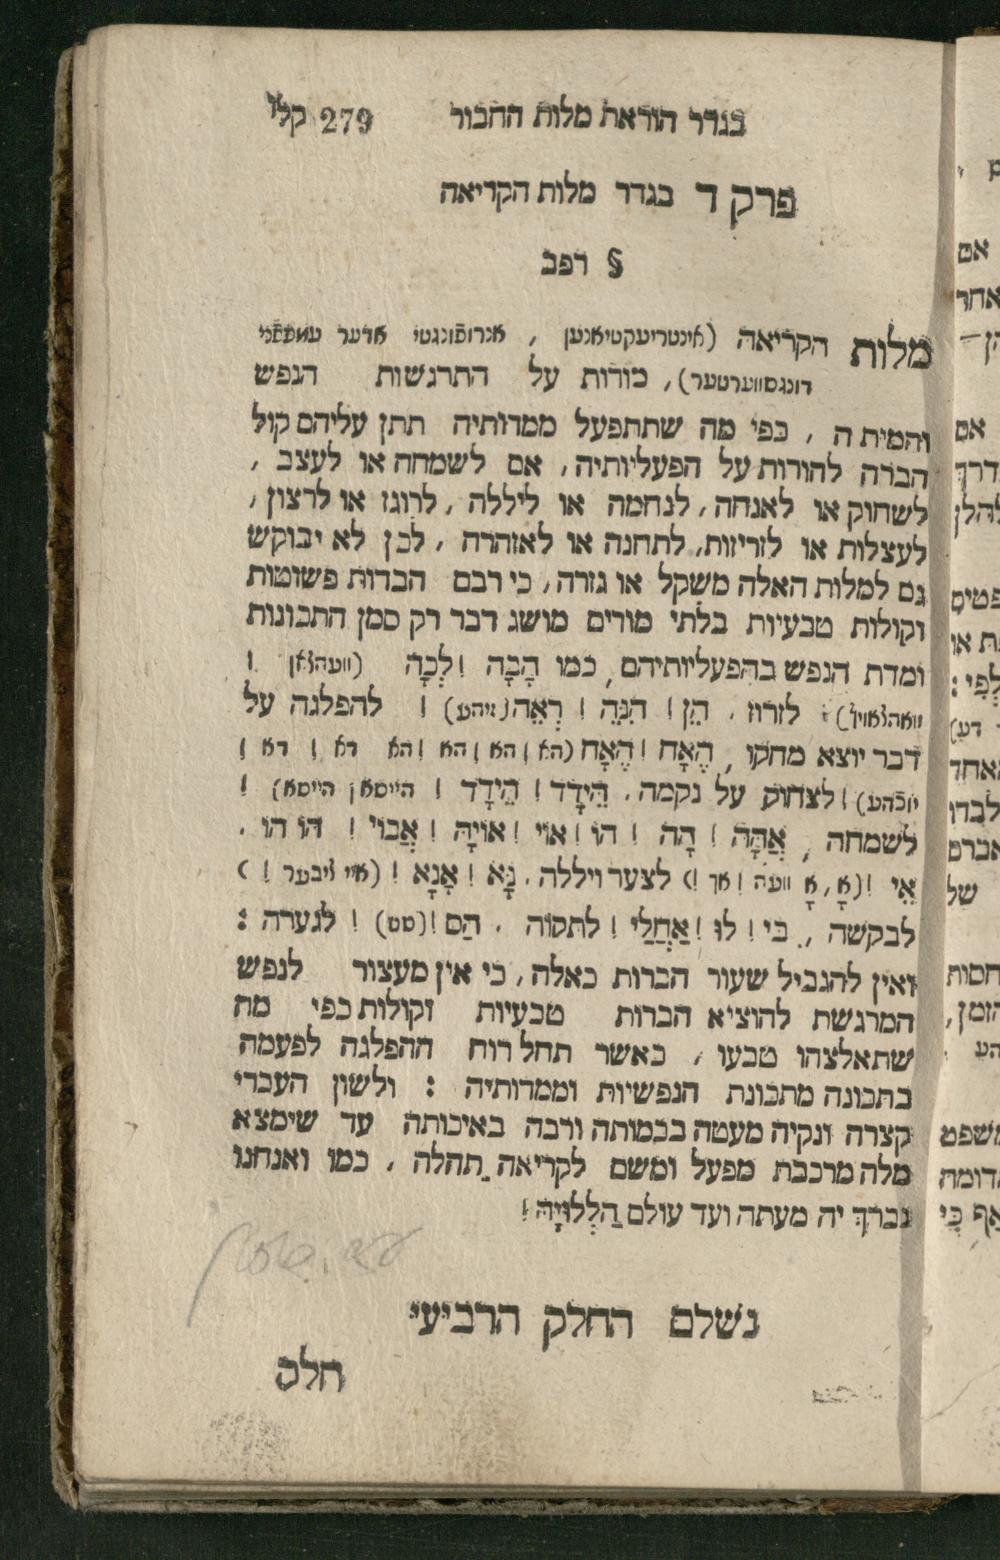 בגדר הוראת מלות החבור 279
פרק ד בגדר מלות הקריאה
§ רפב
מלות הקריאה (אינטריעקטיאנען , אויסרופונגס אדער
דונגסווערטער), מורות על התרגשות הנפש
והמיתה , כפי מה שתתפעל ממדותיה תתן עליהם קול
הברה להורות על הפעליותיה, אם לשמחה או לעצב ,
לשחוק או לאנחה, לנחמה או ליללה , לרוגז או לרצון ,
לעצלות או לזריזות, לתחנה או לאזהרה , לכן לא יבוקש
גם למלות האלה משקל או גזרה, כי רבם הברות פשוטות
וקולות טבעיות בלתי מורים מושג דבר רק סמן התכונות
ומדת הנפש בהפעליותיהם, כמו הָבָה ! לְכָה (וועהלאן !
לזרוז . הֵן ! הִנֵּה ! רְאֵה (זיהע) ! להפלגה על
דבר יוצא מחקו , הֶאָח ! הֶאָח (הא ! הא ! הא ! הא דא ! דא !
יוכהע) ! לצחוק על נקמה . הֵידָד ! הֵידָד ! הייסא ! הייסא) !
לשמחה , אֲהָהּ ! הָהּ ! הוֹ ! אוֹי ! אוֹיָה ! אֲבוֹי ! הוֹ הוֹ .
אִי ! (אָ, אָ וועה ! אך !) לצער ויללה . נָּא ! אָנָא ! (איי ליבער ! )
לבקשה , בִּי ! לוּ ! אַחֲלַי ! לתקוה . הַס ! (סט) ! לגערה :
ואין להגביל שעור הברות כאלה, כי אין מעצור לנפש
המרגשת להוציא הברות טבעיות וקולות כפי מה
שתאלצהו טבעו , כאשר תחל רוח ההפלגה לפעמה
בתכונה מתכונת הנפשיות וממדותיה : ולשון העברי
קצרה ונקיה מעטה בכמותה ורבה באיכותה עד שימצא
מלה מרכבת מפעל ומשם לקריאה תהלה . כמו ואנחנו
נברך יה מעתה ועד עולם הַלְלוּיָהּ !
נשלם החלק הרביעי
חלק